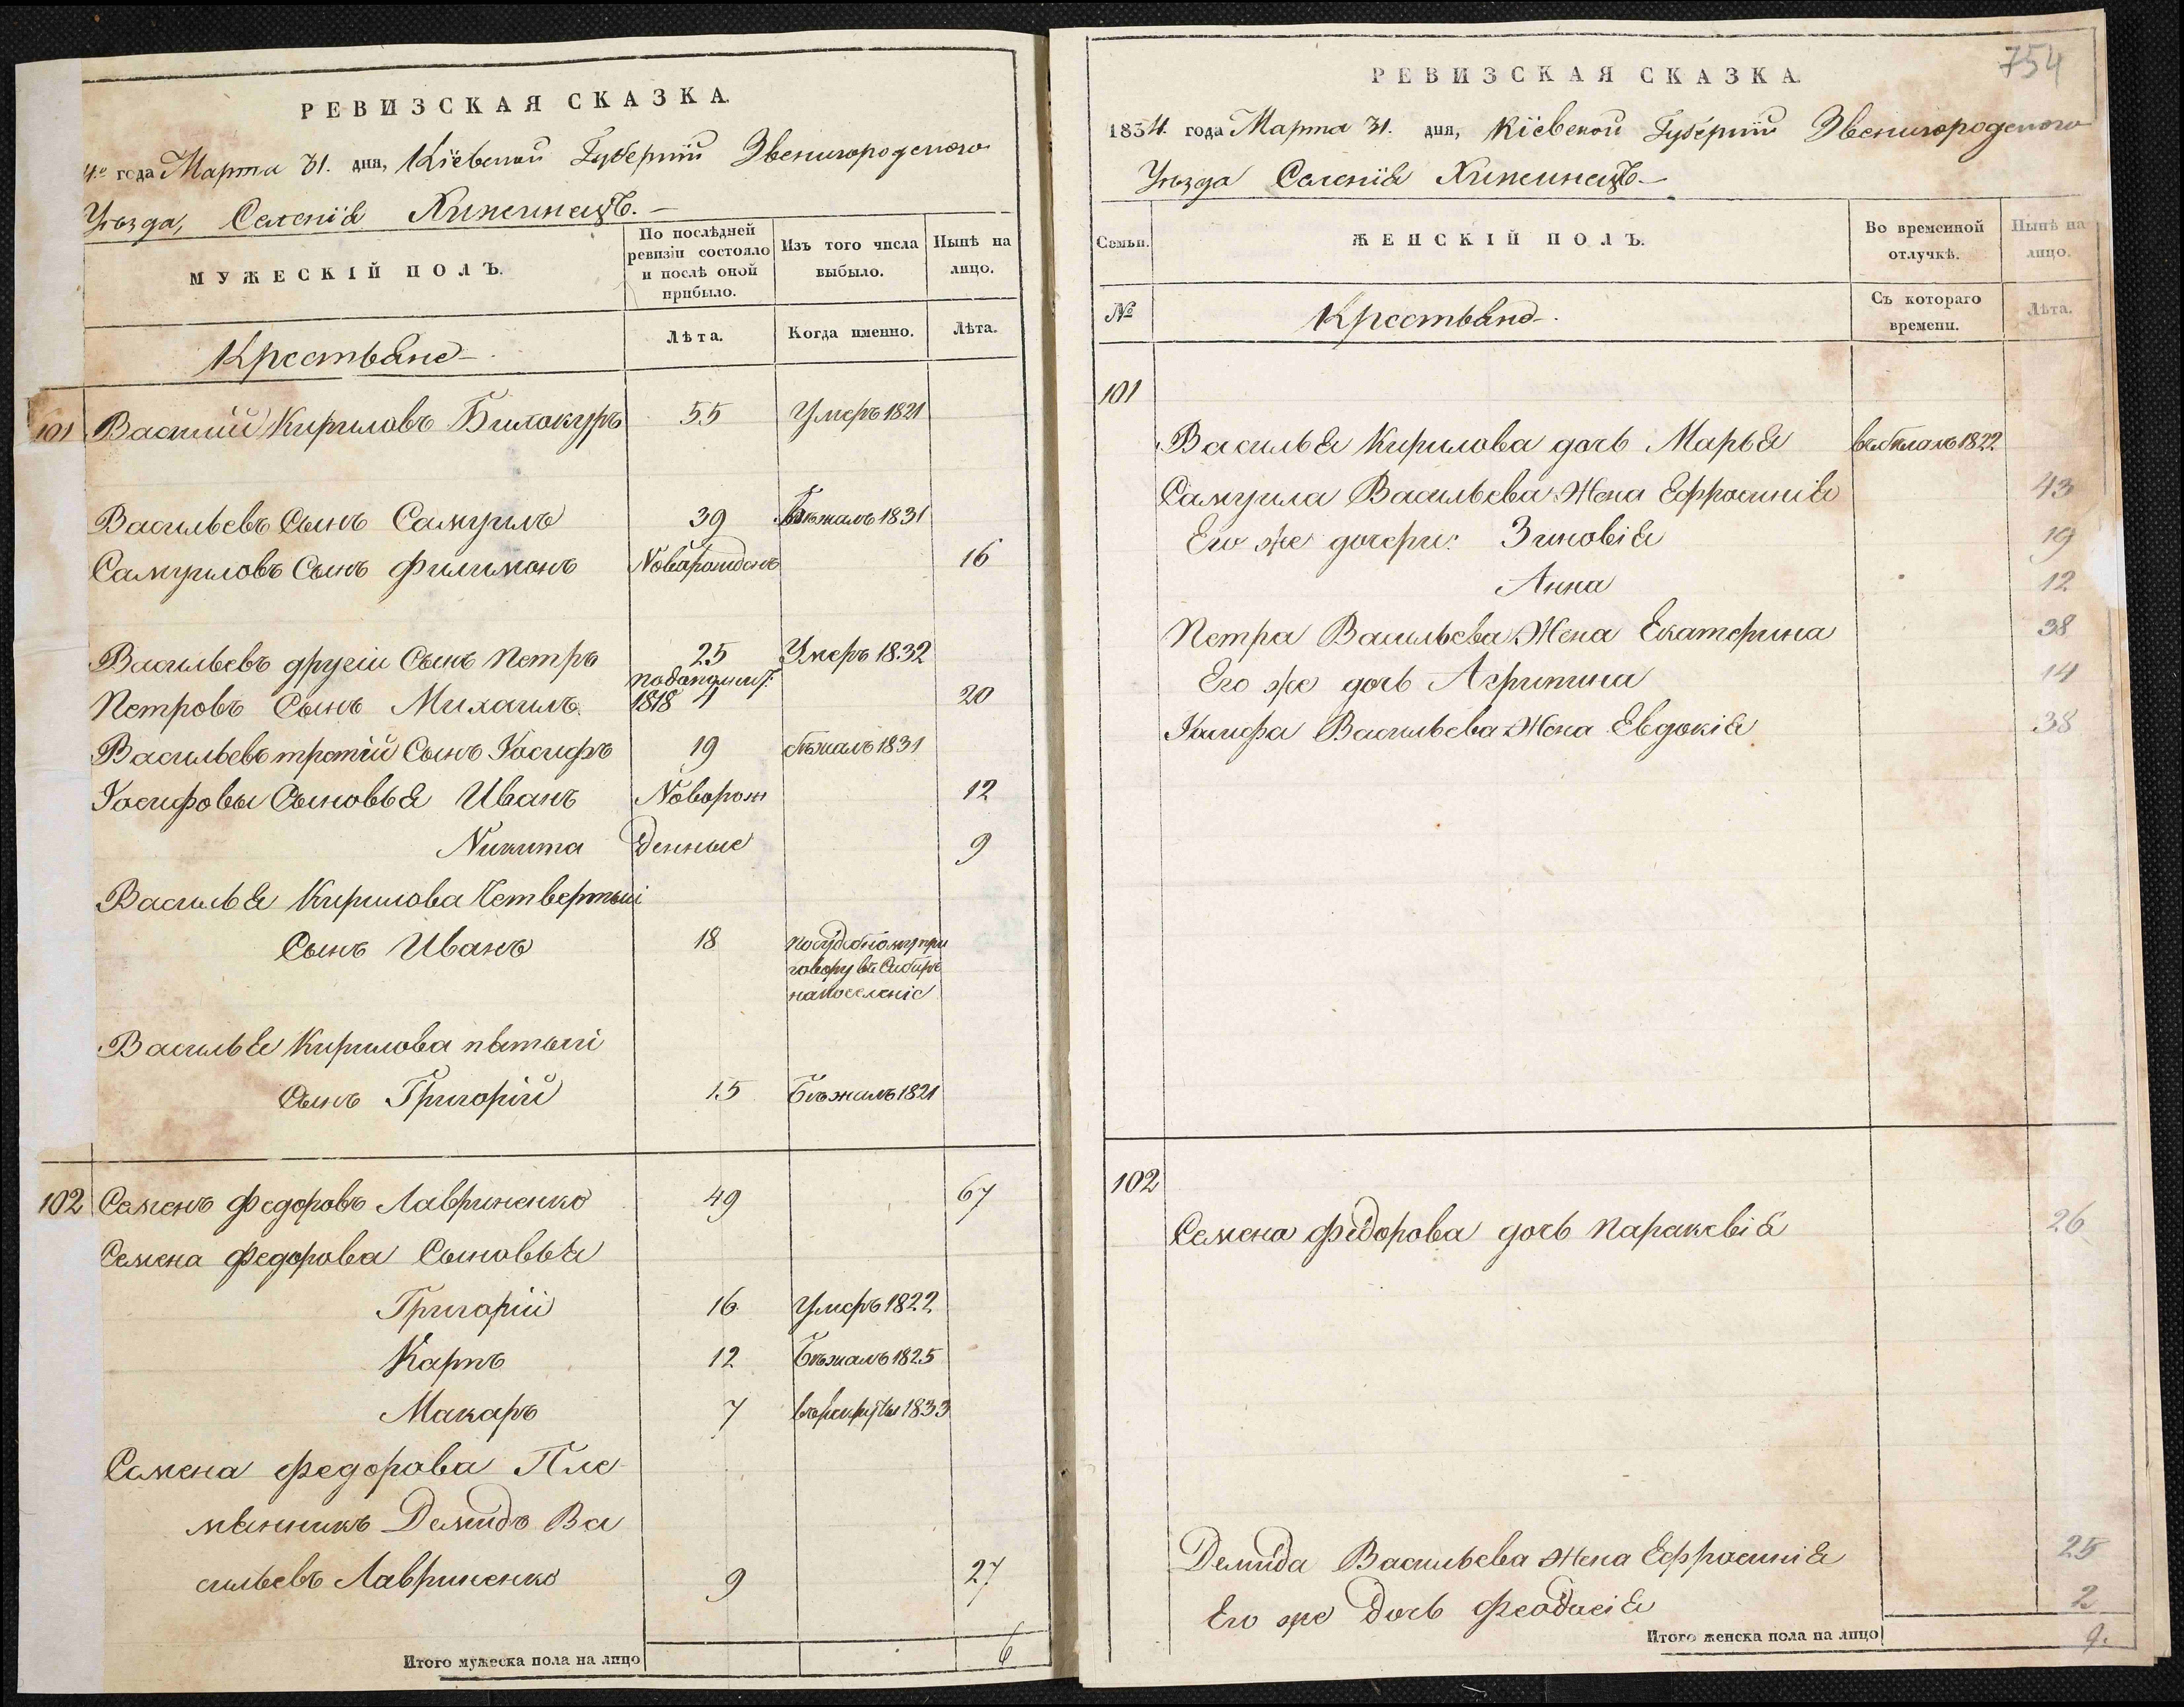 РЕВИЗСКАЯ СКАЗКА.
4го года Марта 31. дня, Кіевской Губерніи Звенигородского
Уѣзда, Селенія Хижинецъ.
МУЖЕСКІЙ ПОЛЪ.
По послѣдней ревизіи состояло и послѣ оной прибыло.
Изъ того числа выбыло.
Нынѣ на лицо.
Крестьяне
Лѣта.
Когда именно.
Лѣта.
101 Василій Кириловъ Билокуръ 55 Умеръ 1821
Васильевъ Сынъ Самуилъ 39 Бѣжалъ 1831
Самуиловъ Сынъ Филимонъ Новорожденъ 16
Васильевъ другіи Сынъ Петръ 25 Умеръ 1832
Петровъ Сынъ Михаилъ. 1818 4 20
Васильевъ третій Сынъ Іосифъ 19 бѣжалъ 1831
Іосифовы Сыновья Иванъ Новорож 12
Никита денные 9
Василья Кирилова Четвертыі
Сынъ Иванъ 18 по судебному при
говору въ Сибирь
на поселеніе
Василья Кирилова пятыі
Сынъ Григорій 15 Бѣжалъ 1821
102 Семенъ Федоровъ Лавриненко 49 67
Семена Федорова Сыновья
Григоріи 16 Умеръ 1822
Карпъ 12 Бѣжалъ 1825
Макаръ 7 в рекруты 1833
Семена Федорова Пле
мянникъ Демидъ Ва
сильевъ Лавриненко 9 27
Итого мужеска пола на лицо 6
754
РЕВИЗСКАЯ СКАЗКА.
1834. года Марта 31. дня, Кіевской Губерніи Звенигородского
Уѣзда Селенія Хижинецъ
Семьи.
ЖЕНСКІЙ ПОЛЪ.
Во временной отлучкѣ.
Нынѣ на лицо.
№
Крестьяне.
Съ котораго времени.
Лѣта.
101
Василья Кирилова дочь Марья 1822
Самуила Васильева Жена Ефросинія 43
Его же дочери: Зиновія 19
Анна 12
Петра Васильева Жена Екатерина 38
Его же дочь Агрипина 14
Іосифа Васильева Жена Евдокія 38
102
Семена Федорова дочь Параксвія 26
Демида Васильева Жена Ефросинія 25
Его же Дочь Феодосія 2
Итого женска пола на лицо 9.